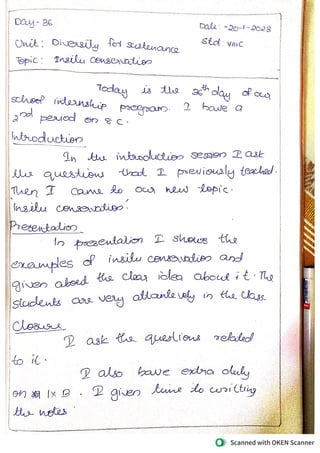 Day - 36
Date: - 20-1-2023
Unit: Diversity for sustenance
Std VIII C
Topic: Insitu conservation
Today is the 36th day of our
school internship program. I have a
2nd period on 8 C.
Introduction
In the introduction session I ask
the questions that I previously teached.
Then I came to our new topic.
'Insitu conservation.'
Presentation
In presentation I shows the
examples of insitu conservation and
given about the clear idea about it. The
students are very attantively in the class
Closure
I ask the questions related
to it.
I also have extra duty
on IX B. I given time to writting
the notes.
Scanned with OKEN Scanner